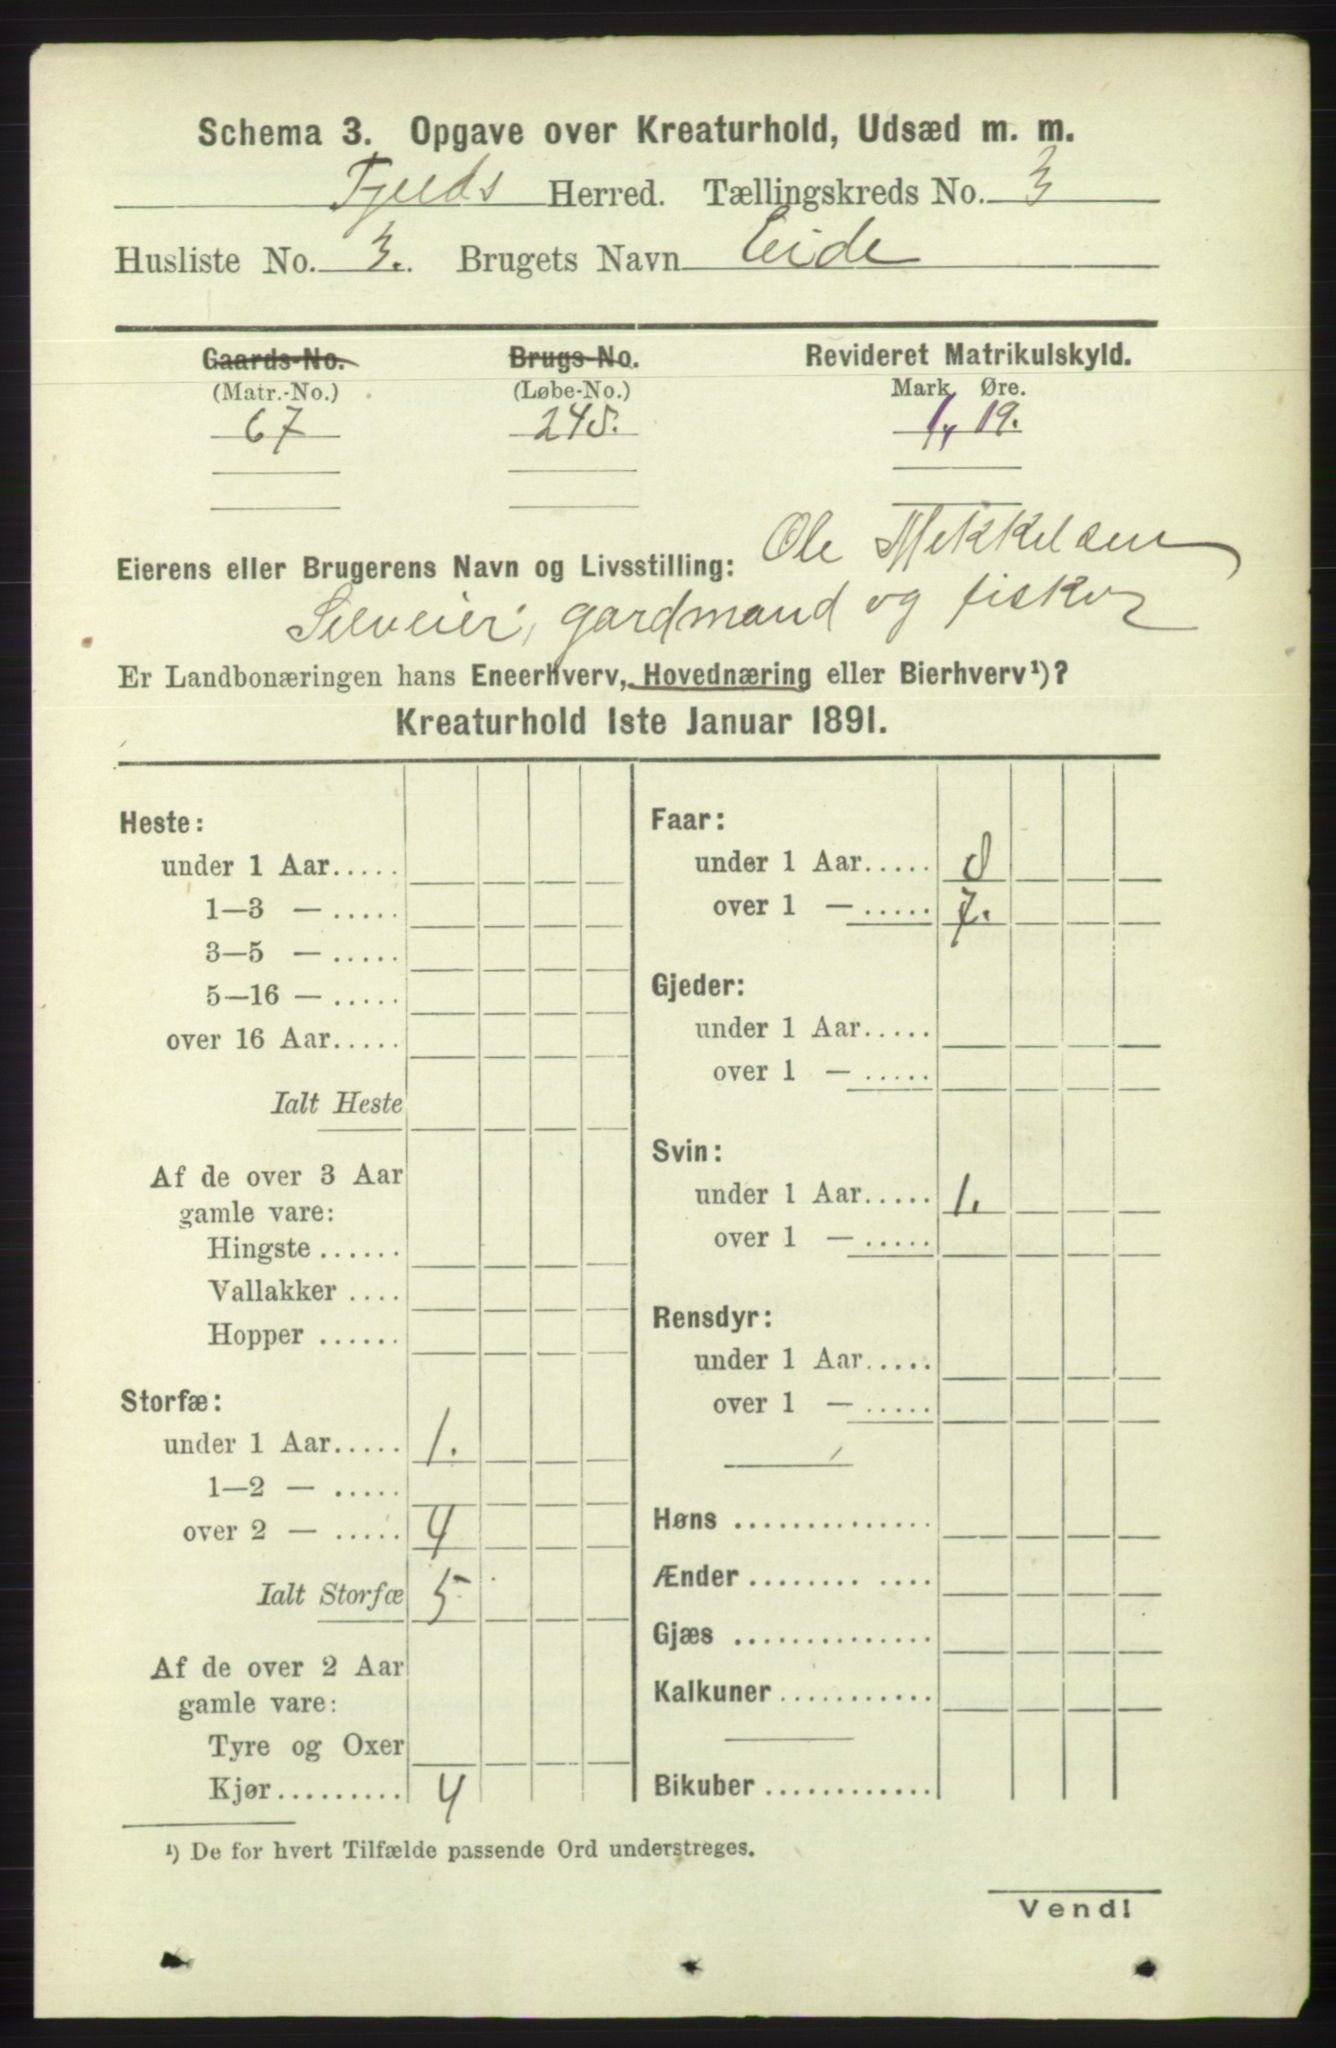 Schema 3. Opgave over Kreaturhold, Udsæd m. m.
Fjelds Herred. Tællingskreds No. 3
Husliste No. 3. Brugets Navn Eide
Gaards-No. Brugs-No. Revideret Matrikulskyld.
(Matr.-No.) (Løbe-No.) Mark Øre.
67 245. 1, 19.
Eierens eller Brugerens Navn og Livsstilling: Ole Mekkelsen
Selveier, gardmand og fisker
Er Landbonæringen hans Eneerhverv, Hovednæring eller Bierhverv¹)?
Kreaturhold 1ste Januar 1891.
Heste:
under 1 Aar.....
1—3 — .....
3—5 — .....
5—16 — .....
over 16 Aar.....
Ialt Heste
Af de over 3 Aar
gamle vare:
Hingste ......
Vallakker ....
Hopper ......
Storfæ:
under 1 Aar..... 1.
1—2 — .....
over 2 — ..... 4
Ialt Storfæ 5
Af de over 2 Aar
gamle vare:
Tyre og Oxer
Kjør......... 4
Faar:
under 1 Aar.....
over 1 — ..... 7.
Gjeder:
under 1 Aar.....
over 1 — .....
Svin:
under 1 Aar..... 1.
over 1 — .....
Rensdyr:
under 1 Aar.....
over 1 — .....
Høns ..............
Ænder ........ ....
Gjæs ..............
Kalkuner ...........
Bikuber ............
¹) De for hvert Tilfælde passende Ord understreges.
Vend!